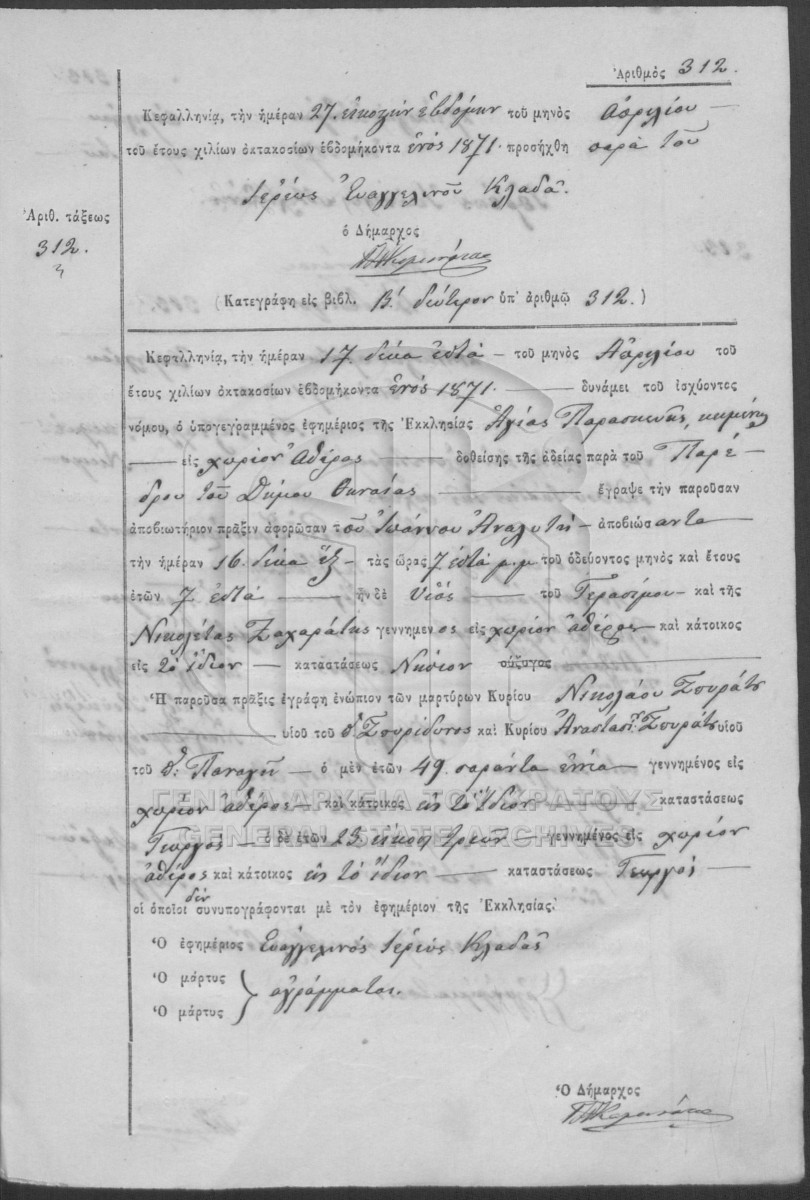 Ἀριθμὸς 312.
Κεφαλληνίᾳ, τὴν ἡμέραν 27. εἰκοστὴν ἑβδόμην τοῦ μηνὸς Ἀπριλίου —
τοῦ ἔτους χιλίων ὀκτακοσίων ἑβδομήκοντα ἑνός 1871. προσήχθη παρὰ τοῦ
Ἱερέως Εὐαγγελινοῦ Κλαδᾶ.
Ἀριθ. τάξεως
312.
ὁ Δήμαρχος
(Κατεγράφη εἰς βιβλ. Β΄. δεύτερον ὑπ' ἀριθμῷ 312.)
Κεφαλληνίᾳ, τὴν ἡμέραν 17 δέκα ἑπτὰ — τοῦ μηνὸς Ἀπριλίου τοῦ
ἔτους χιλίων ὀκτακοσίων ἑβδομήκοντα ἑνός 1871. — δυνάμει τοῦ ἰσχύοντος
νόμου, ὁ ὑπογεγραμμένος ἐφημέριος τῆς Ἐκκλησίας Ἁγίας Παρασκευῆς, κειμένης
— εἰς χωρίον Ἀθέρας — δοθείσης τῆς ἀδείας παρὰ τοῦ Παρέ-
δρου τοῦ Δήμου Θιναίας — ἔγραψε τὴν παροῦσαν
ἀποβιωτήριον πρᾶξιν ἀφορῶσαν τὸν Ἰωάννου Ἀναλυτῆ — ἀποβιώσαντα
τὴν ἡμέραν 16. δέκα ἕξ — τὰς ὥρας 7 ἑπτὰ μ.μ τοῦ ὁδεύοντος μηνὸς καὶ ἔτους
ἐτῶν 7 ἑπτὰ — ἦν δὲ Υἱὸς — τοῦ Γερασίμου — καὶ τῆς
Νικολέτας Ζαχαράτης γεννημενος εἰς χωρίον ἀθέρας καὶ κάτοικος
εἰς τὸ ἴδιον — καταστάσεως Νήπιον σύζυγος
Ἡ παροῦσα πρᾶξις ἐγράφη ἐνώπιον τῶν μαρτύρων Κυρίου Νικολάου
— υἱοῦ τοῦ Σπυρίδωνος καὶ Κυρίου υἱοῦ
τοῦ π. Παναγῆ — ὁ μὲν ἐτῶν 49. σαράντα ἐννέα — γεννημένος εἰς
χωρίον ἀθέρας — καὶ κάτοικος εἰς τὸ ἴδιον — καταστάσεως
Γεωργὸς — ὁ δὲ ἐτῶν 23 εἴκοσι τριῶν γεννημένος εἰς χωρίον
ἀθέρας καὶ κάτοικος εἰς τὸ ἴδιον — καταστάσεως Γεωργὸς —
οἱ ὁποῖοι δὲν συνυπογράφονται μὲ τὸν ἐφημέριον τῆς Ἐκκλησίας.
Ὁ ἐφημέριος Εὐαγγελινός Ἱερεύς Κλαδᾶς
Ὁ μάρτυς
ἀγράμματοι.
Ὁ μάρτυς
Ὁ Δήμαρχος
ΓΕΝΙΚΑ ΑΡΧΕΙΑ ΤΟΥ ΚΡΑΤΟΥΣ
GENERAL STATE ARCHIVES